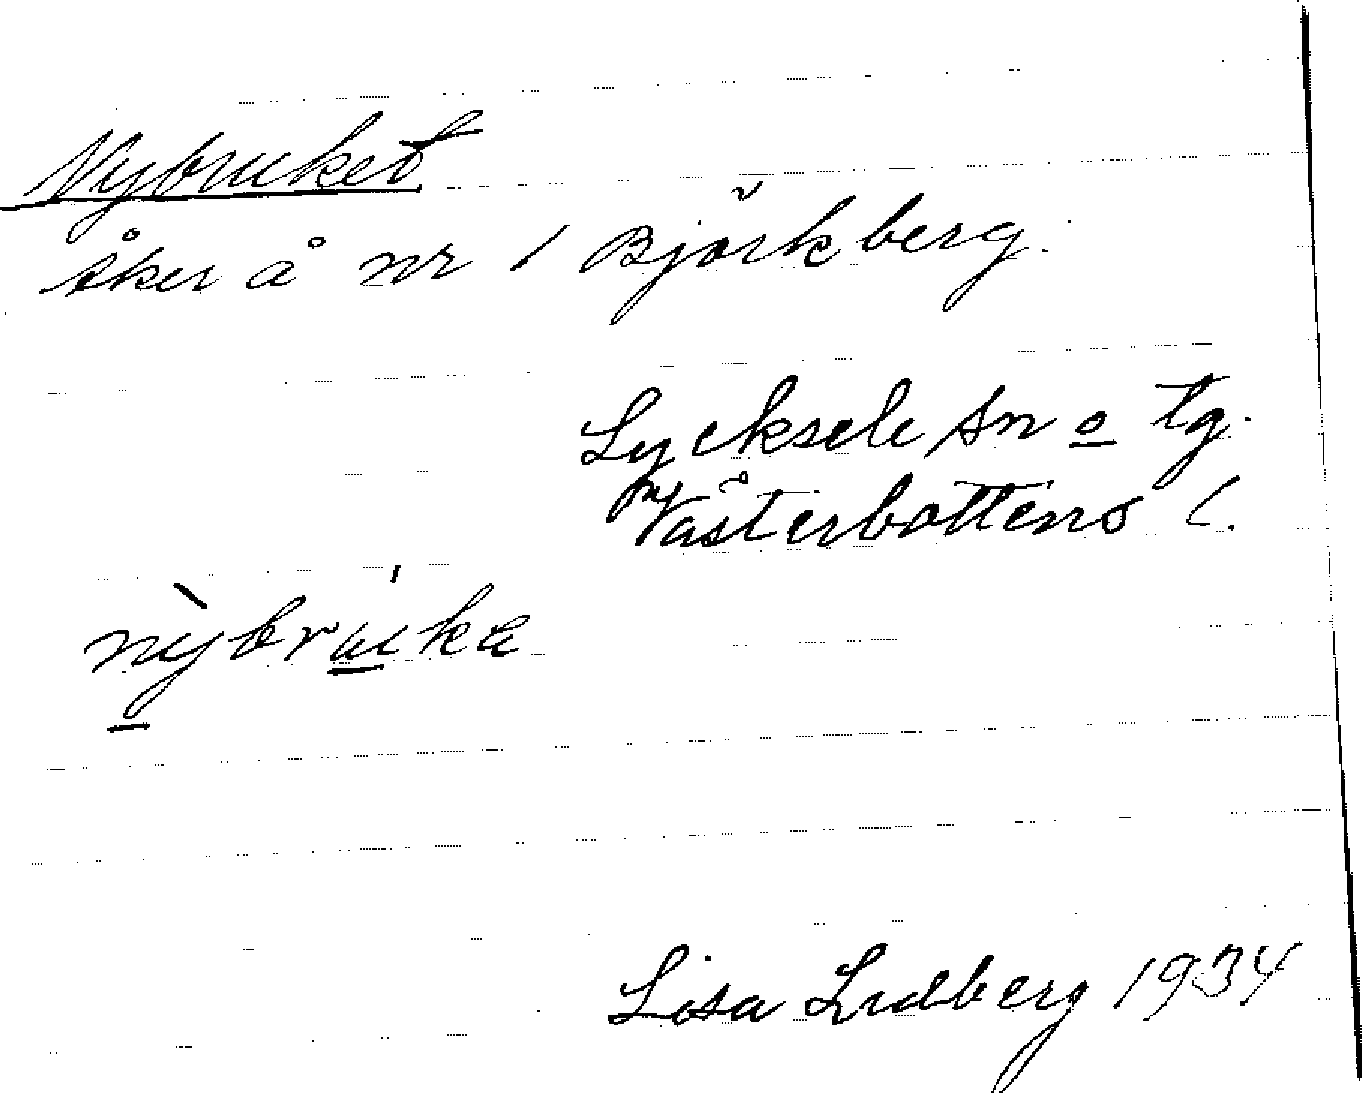 Nybruket
åker å nr 1 Björkberg.
Lycksele sn o tg.
Västerbottens l.
nỳbrúka
Lisa Lidberg 1934